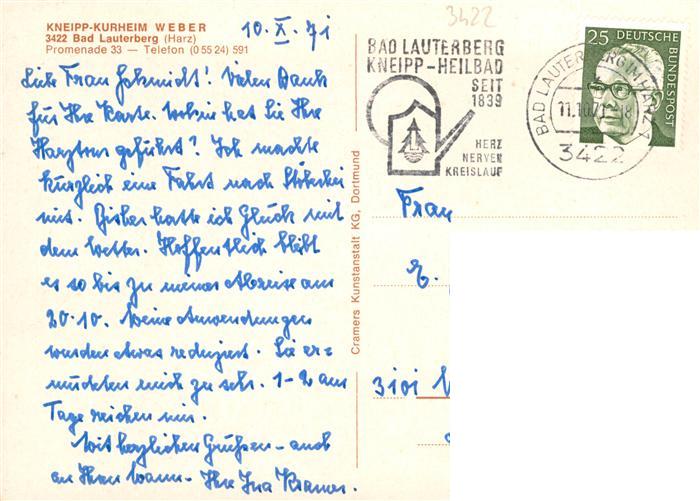 KNEIPP-KURHEIM WEBER
3422 Bad Lauterberg (Harz)
Promenade 33 — Telefon (0 55 24) 591
10. X. 71
Liebe Frau Schmidt! Vielen Dank
für Ihre Karte. Wohin hat Sie Ihre
Harztour geführt? Ich machte
kürzlich eine Fahrt nach
mit. Bisher hatte ich Glück mit
dem Wetter. Hoffentlich bleibt
es so bis zu meiner Abreise am
20.10. Meine Anwendungen
wurden etwas reduziert. Sie er-
müdeten mich zu sehr. 1-2 am
Tage reichen mir.
Mit herzlichen Grüßen - auch
an Ihren Mann - Ihre Ina Kramer.
Cramers Kunstanstalt KG, Dortmund
3422
BAD LAUTERBERG
KNEIPP-HEILBAD
SEIT
1839
HERZ
NERVEN
KREISLAUF
BAD LAUTERBERG IM HARZ 1
11.10.71-18
3422
25 DEUTSCHE
BUNDESPOST
Frau
E.
3101